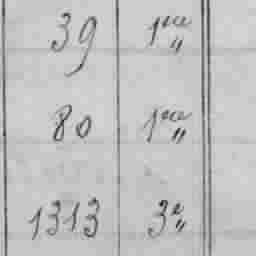 39 1re "
80 1re "
1313 3e "